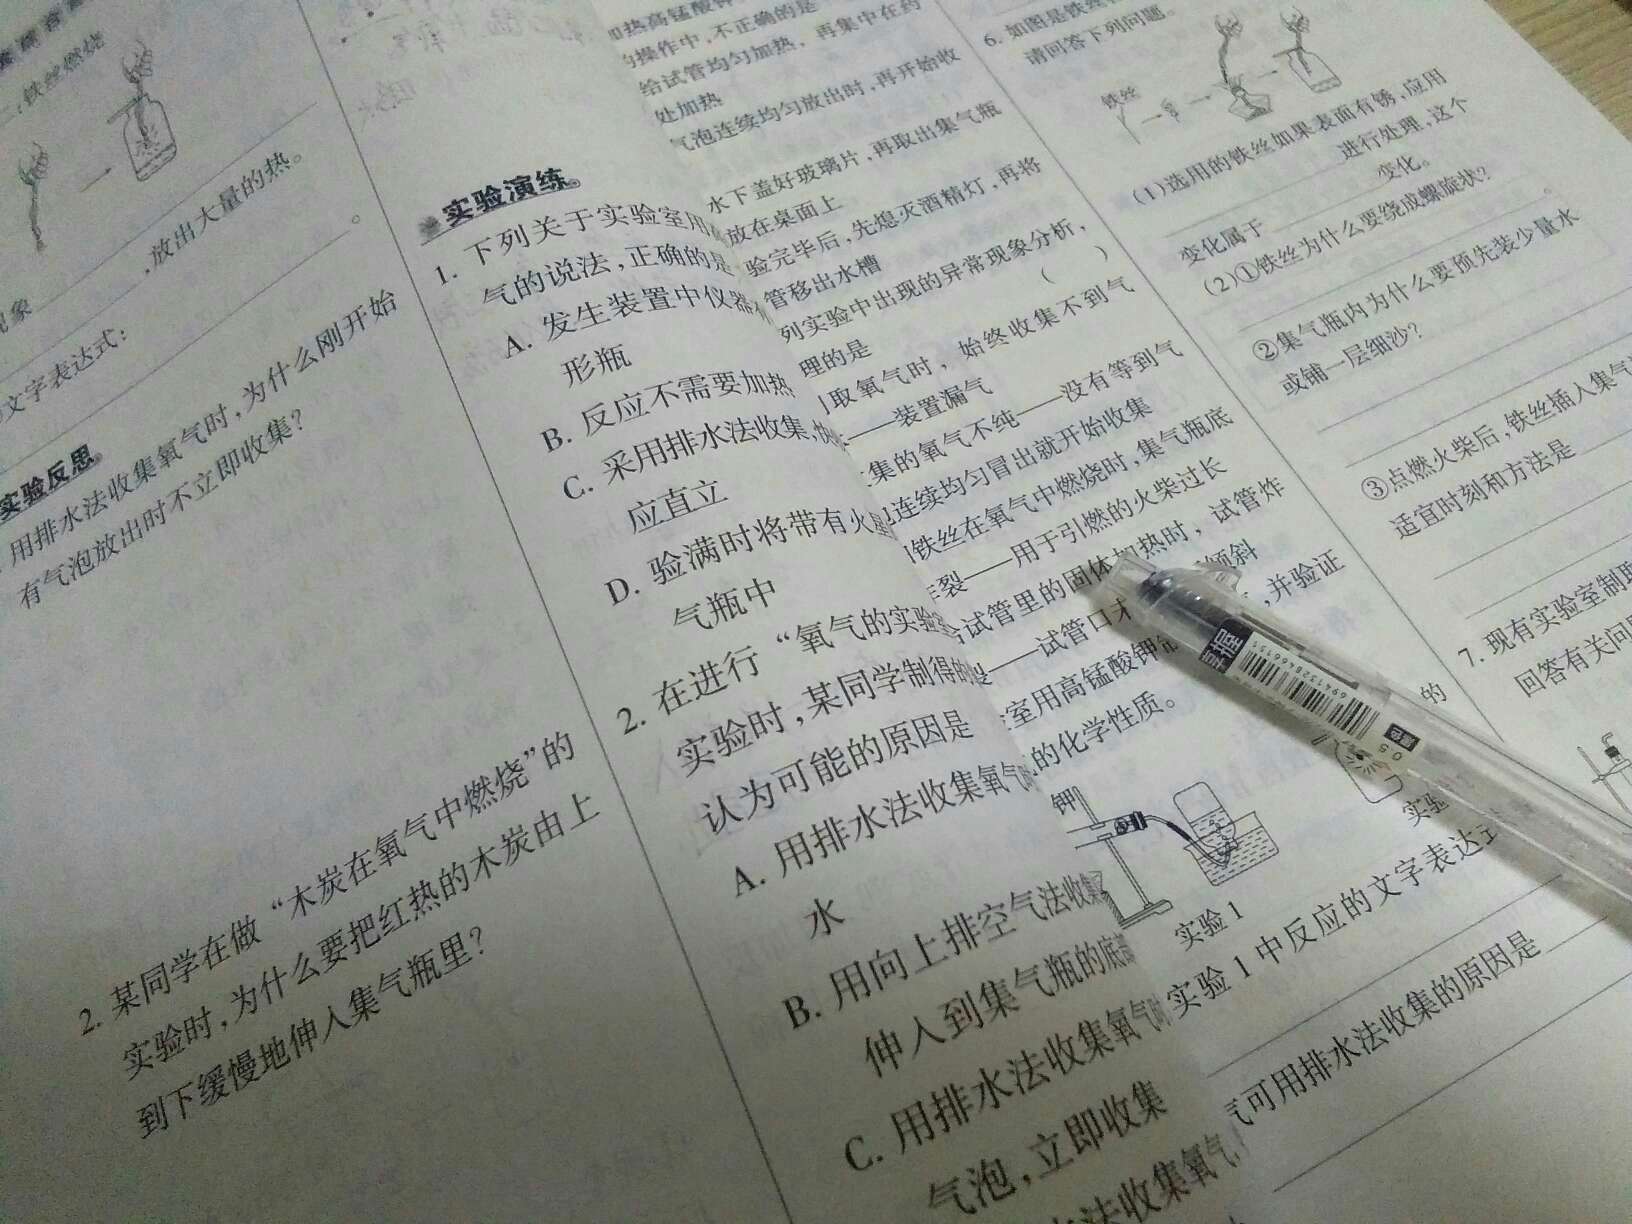 铁丝燃烧
,放出大量的热。
现象
文字表达式:
实验反思
用排水法收集氧气时,为什么刚开始
有气泡放出时不立即收集?
2. 某同学在做“木炭在氧气中燃烧”的
实验时,为什么要把红热的木炭由上
到下缓慢地伸入集气瓶里?
实验演练
1. 下列关于实验室用
气的说法,正确的是
A. 发生装置中仪器
形瓶
B. 反应不需要加热
C. 采用排水法收集,
应直立
D. 验满时将带有火
气瓶中
2. 在进行“氧气的实验
实验时,某同学制得的
认为可能的原因是
A. 用排水法收集氧气
水
B. 用向上排空气法收集
伸入到集气瓶的底部
C. 用排水法收集氧气时
气泡,立即收集
法收集氧气
加热高锰酸钾
的操作中,不正确的是
给试管均匀加热,再集中在药
处加热
气泡连续均匀放出时,再开始收
水下盖好玻璃片,再取出集气瓶
放在桌面上
验完毕后,先熄灭酒精灯,再将
管移出水槽
列实验中出现的异常现象分析,
理的是 ( )
取氧气时,始终收集不到气
——装置漏气
集的氧气不纯——没有等到气
连续均匀冒出就开始收集
铁丝在氧气中燃烧时,集气瓶底
裂——用于引燃的火柴过长
试管里的固体加热时,试管炸
——试管口 倾斜
室用高锰酸钾 ,并验证
的化学性质。
钾
实验1
实验1中反应的文字表达
气可用排水法收集的原因是
6. 如图是铁丝
请回答下列问题。
铁丝
(1)选用的铁丝如果表面有锈,应用
进行处理,这个
变化属于 变化。
(2)①铁丝为什么要绕成螺旋状?
。
②集气瓶内为什么要预先装少量水
或铺一层细沙?
③点燃火柴后,铁丝插入集气
适宜时刻和方法是
7. 现有实验室制取
回答有关问
的
实验
掌握
6941328466151
0.5